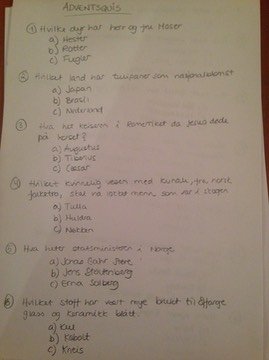 ADVENTSQUIS
1) Hvilke dyr har herr og fru Moser
a) Hester
b) Rotter
c) Fugler
2) Hvilket land har tulipaner som nasjonalblomst
a) Japan
b) Brasil
c) Nederland
3) Hva het keiseren i Romerriket da Jesus døde
på korset?
a) Augustus
b) Tiberius
c) Cæsar
4) Hvilket kvinnelig vesen med kuhale, fra norsk
folketro, skal ha lokket menn som var i skogen
a) Tulla
b) Huldra
c) Nøkken
5) Hva heter statsministeren i Norge
a) Jonas Gahr Støre
b) Jens Stoltenberg
c) Erna Solberg
6) Hvilket stoff har vært mye brukt til å farge
glass og keramikk blått
a) Kull
b) Kobolt
c) Kneis